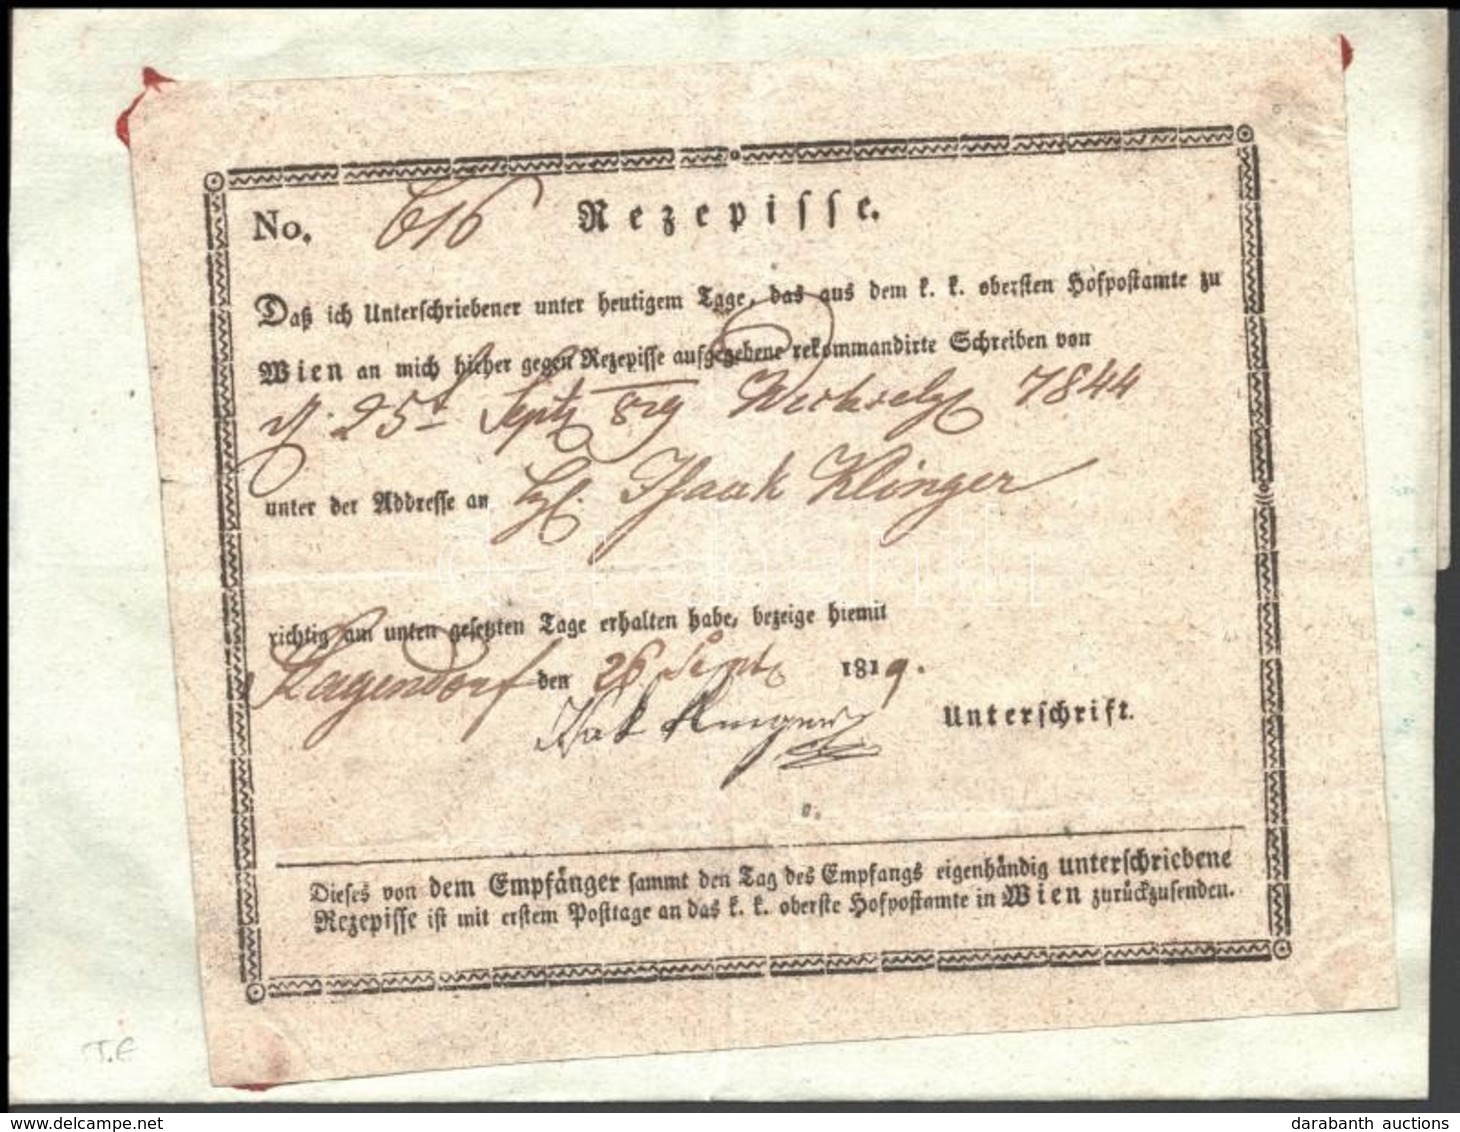 No. 616 Rezepisse.
Daß ich Unterschriebener unter heutigem Tage, das aus dem k. k. obersten Hofpostamte zu
Wien an mich hieher gegen Rezepisse aufgegebene rekommandirte Schreiben von
25t Septb 819 7844
unter der Addresse an Isaak Klinger
richtig am unten gesetzten Tage erhalten habe, bezeige hiemit
Ragendorf den 26 Septb 1819.
Isak Klinger Unterschrift.
Dieses von dem Empfänger sammt den Tag des Empfangs eigenhändig unterschriebene
Rezepisse ist mit erstem Posttage an das k. k. oberste Hofpostamte in Wien zurückzusenden.
darabanth
darabanth auctions